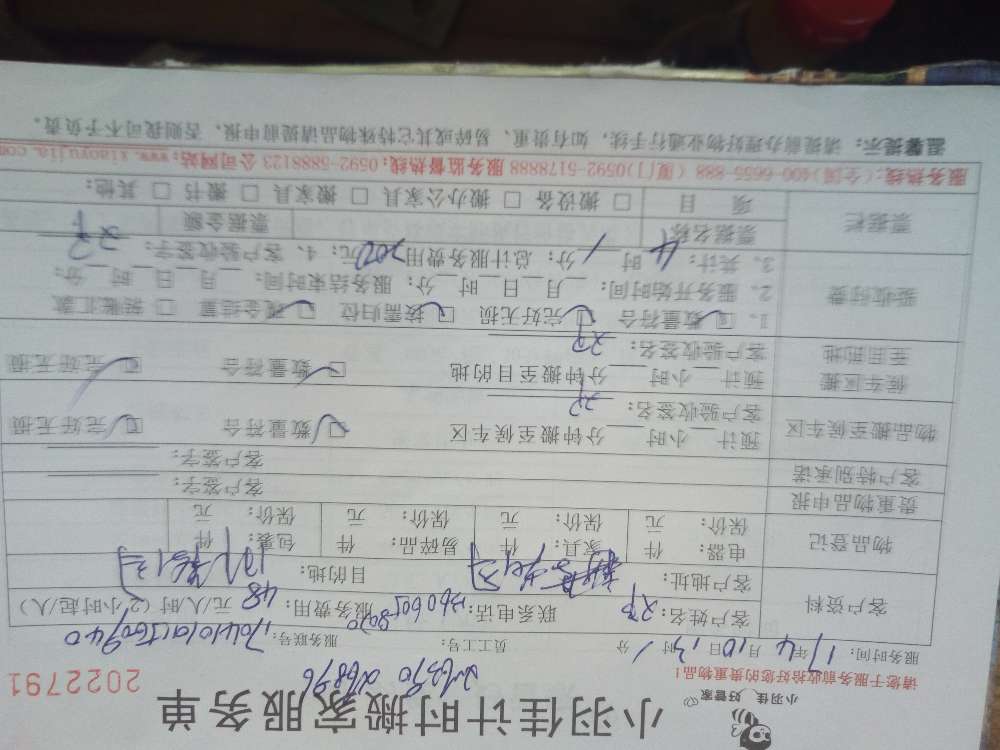 小羽佳 好管家
小羽佳计时搬家服务单
请您于服务前收拾好您的贵重物品！
2022791
服务时间：17年4月10日13时 分 员工工号： 服务联号：
客户资料
客户姓名： 联系电话： 服务费用：48元/人/时（2小时起/人）
客户地址： 目的地：
物品登记
电器： 件 家具： 件 易碎品： 件 包裹： 件
保价： 元 保价： 元 保价： 元 保价： 元
贵重物品申报 客户签字：
客户特别承诺 客户签字：
物品搬至候车区
预计 小时 分钟搬至候车区 数量符合 完好无损
客户验收签名：
候车区搬至目的地
预计 小时 分钟搬至目的地 数量符合 完好无损
客户验收签名：
验收付费
1、数量符合 完好无损 按需归位 现金结算 转账汇款
2、服务开始时间： 月 日 时 分； 服务结束时间： 月 日 时 分；
3、共计：4时 分；总计服务费用 元；4、客户验收签字：
票据栏
票据名称 票据金额
项目 搬设备 搬办公家具 搬家具 搬书 其他：
服务热线：（全国）400-6655-888（厦门）0592-5178888 服务监督热线：0592-5888123 公司网站：www.xiaoyujia.com
温馨提示：请提前办理好物业通行手续，如有贵重、易碎或其它特殊物品请提前申报，否则我司不予负责。